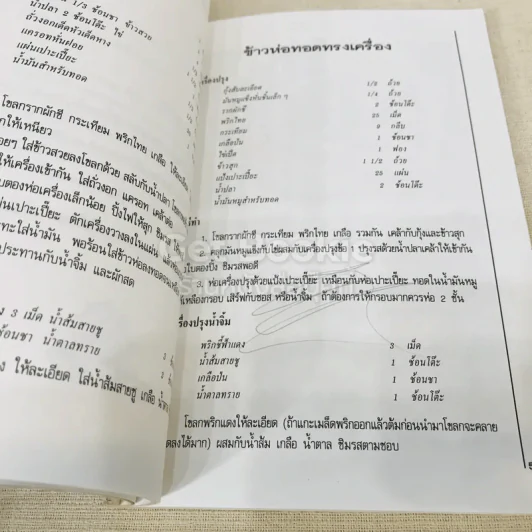 1/3 ช้อนชา ข้าวสวย
น้ำปลา 2 ช้อนโต๊ะ ไข่
ถั่วงอกเด็ดหัวเด็ดหาง
แครอทหั่นฝอย
แผ่นเปาะเปี๊ยะ
น้ำมันสำหรับทอด
โขลกรากผักชี กระเทียม พริกไทย เกลือ ให้ละเอียด
กให้เหนียว
อยๆ ใส่ข้าวสวยลงโขลกด้วย สลับกับน้ำปลา
ให้เครื่องเข้ากัน ใส่ถั่วงอก แครอท เคล้าต่อ
บตองห่อเครื่องเล็กน้อย ปิ้งไฟให้สุก ชิมรสดู
ผ่นเปาะเปี๊ยะ ตักเครื่องวางลงในแผ่น แล้วห่อ
ทะใส่น้ำมัน พอร้อนใส่ข้าวห่อลงทอด
ประทานกับน้ำจิ้ม และผักสด
3 เม็ด น้ำส้มสายชู
ช้อนชา น้ำตาลทราย
ให้ละเอียด ใส่น้ำส้มสายชู เกลือ
ข้าวห่อทอดทรงเครื่อง
เครื่องปรุง
กุ้งสับละเอียด 1/2 ถ้วย
มันหมูแข็งหั่นชิ้นเล็ก ๆ 1/4 ถ้วย
รากผักชี 2 ช้อนโต๊ะ
พริกไทย 25 เม็ด
กระเทียม 9 กลีบ
เกลือป่น 1 ช้อนชา
ไข่เป็ด 1 ฟอง
ข้าวสุก 1 1/2 ถ้วย
แป้งเปาะเปี๊ยะ 25 แผ่น
น้ำปลา 2 ช้อนโต๊ะ
น้ำมันหมูสำหรับทอด
ทำ
โขลกรากผักชี กระเทียม พริกไทย เกลือ รวมกัน เคล้ากับกุ้งและข้าวสุก
คลุกมันหมูแข็งกับไข่ผสมกับเครื่องปรุงข้อ 1 ปรุงรสด้วยน้ำปลาเคล้าให้เข้ากัน
ใบตองปิ้ง ชิมรสพอดี
3. ห่อเครื่องปรุงด้วยแป้งเปาะเปี๊ยะ เหมือนกับห่อเปาะเปี๊ยะ ทอดในน้ำมันหมู
เหลืองกรอบ เสิร์ฟกับซอส หรือน้ำจิ้ม ถ้าต้องการให้กรอบมากควรห่อ 2 ชั้น
เครื่องปรุงน้ำจิ้ม
พริกชี้ฟ้าแดง 3 เม็ด
น้ำส้มสายชู 1 ช้อนโต๊ะ
เกลือป่น 1 ช้อนชา
น้ำตาลทราย 1 ช้อนโต๊ะ
โขลกพริกแดงให้ละเอียด (ถ้าแกะเมล็ดพริกออกแล้วต้มก่อนนำมาโขลกจะคลาย
ดลงได้มาก) ผสมกับน้ำส้ม เกลือ น้ำตาล ชิมรสตามชอบ